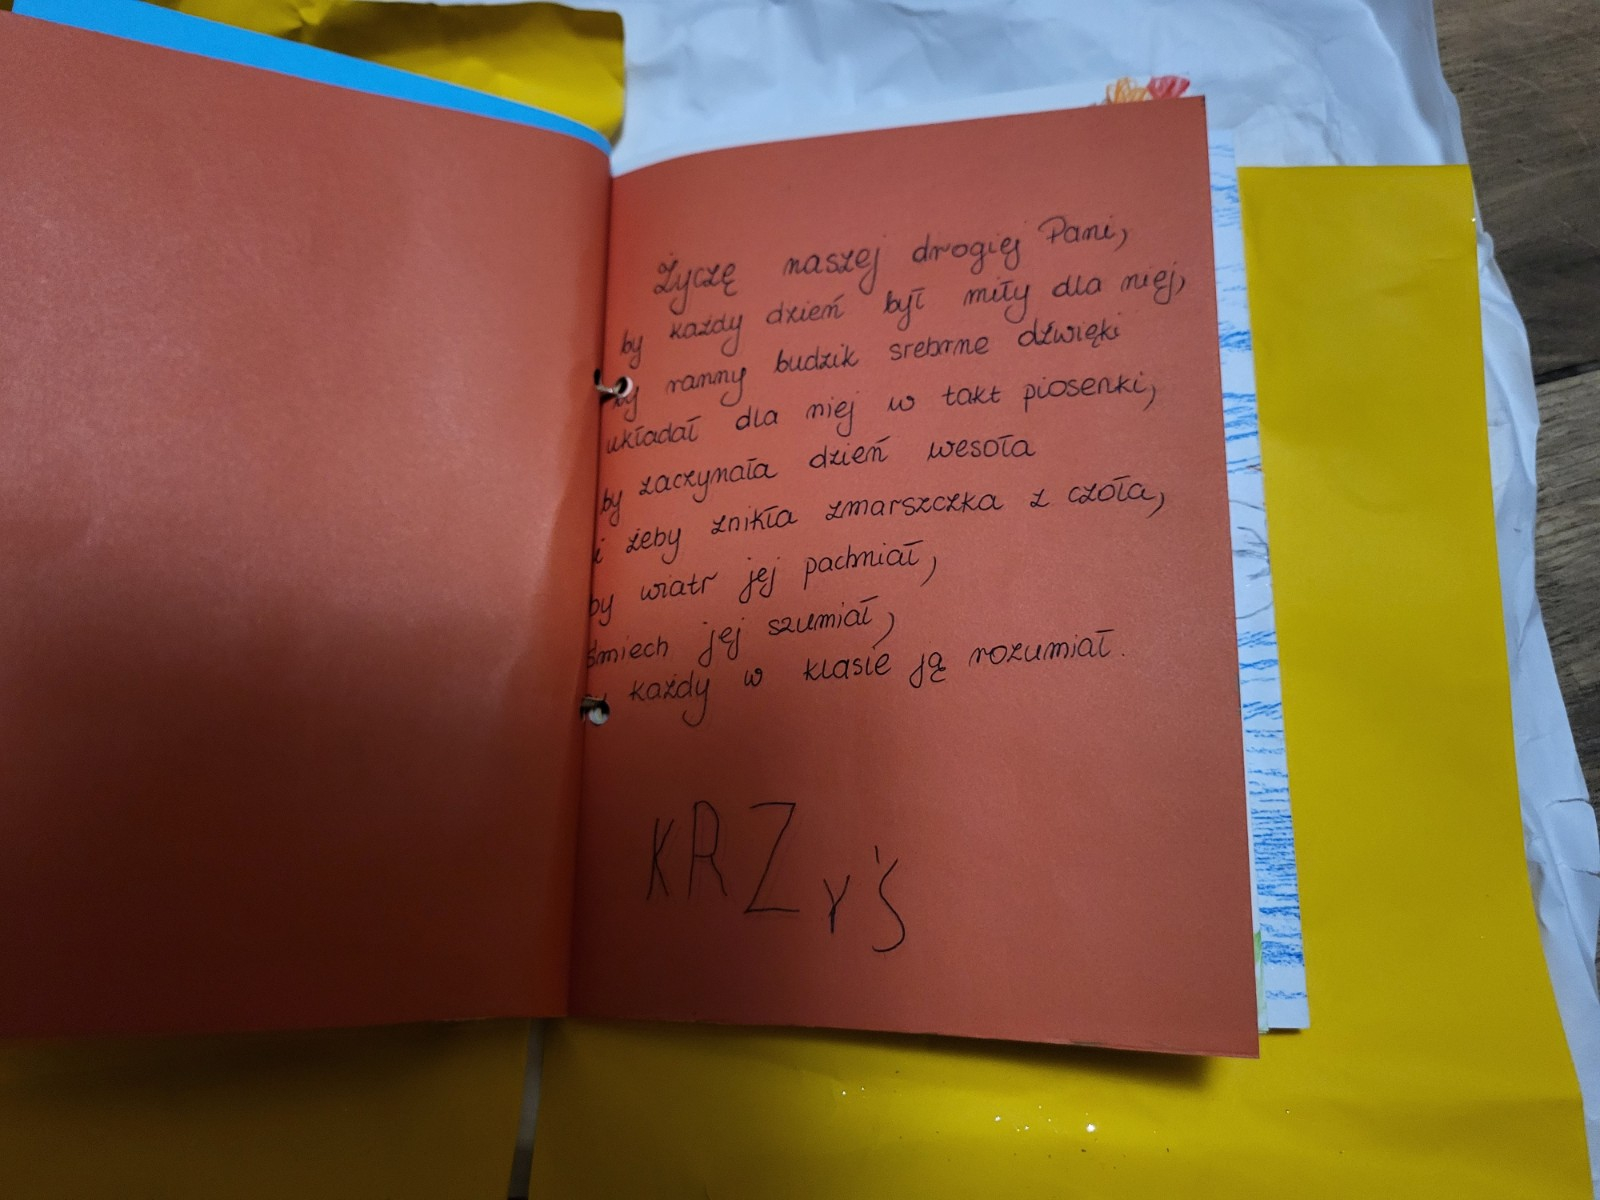 Życzę naszej drogiej Pani,
by każdy dzień był miły dla niej,
by ranny budzik srebrne dźwięki
układał dla niej w takt piosenki,
by zaczynała dzień wesoła
i żeby znikła zmarszczka z czoła,
by wiatr jej pachniał,
śmiech jej szumiał,
by każdy w klasie ją rozumiał.
KRZYŚ